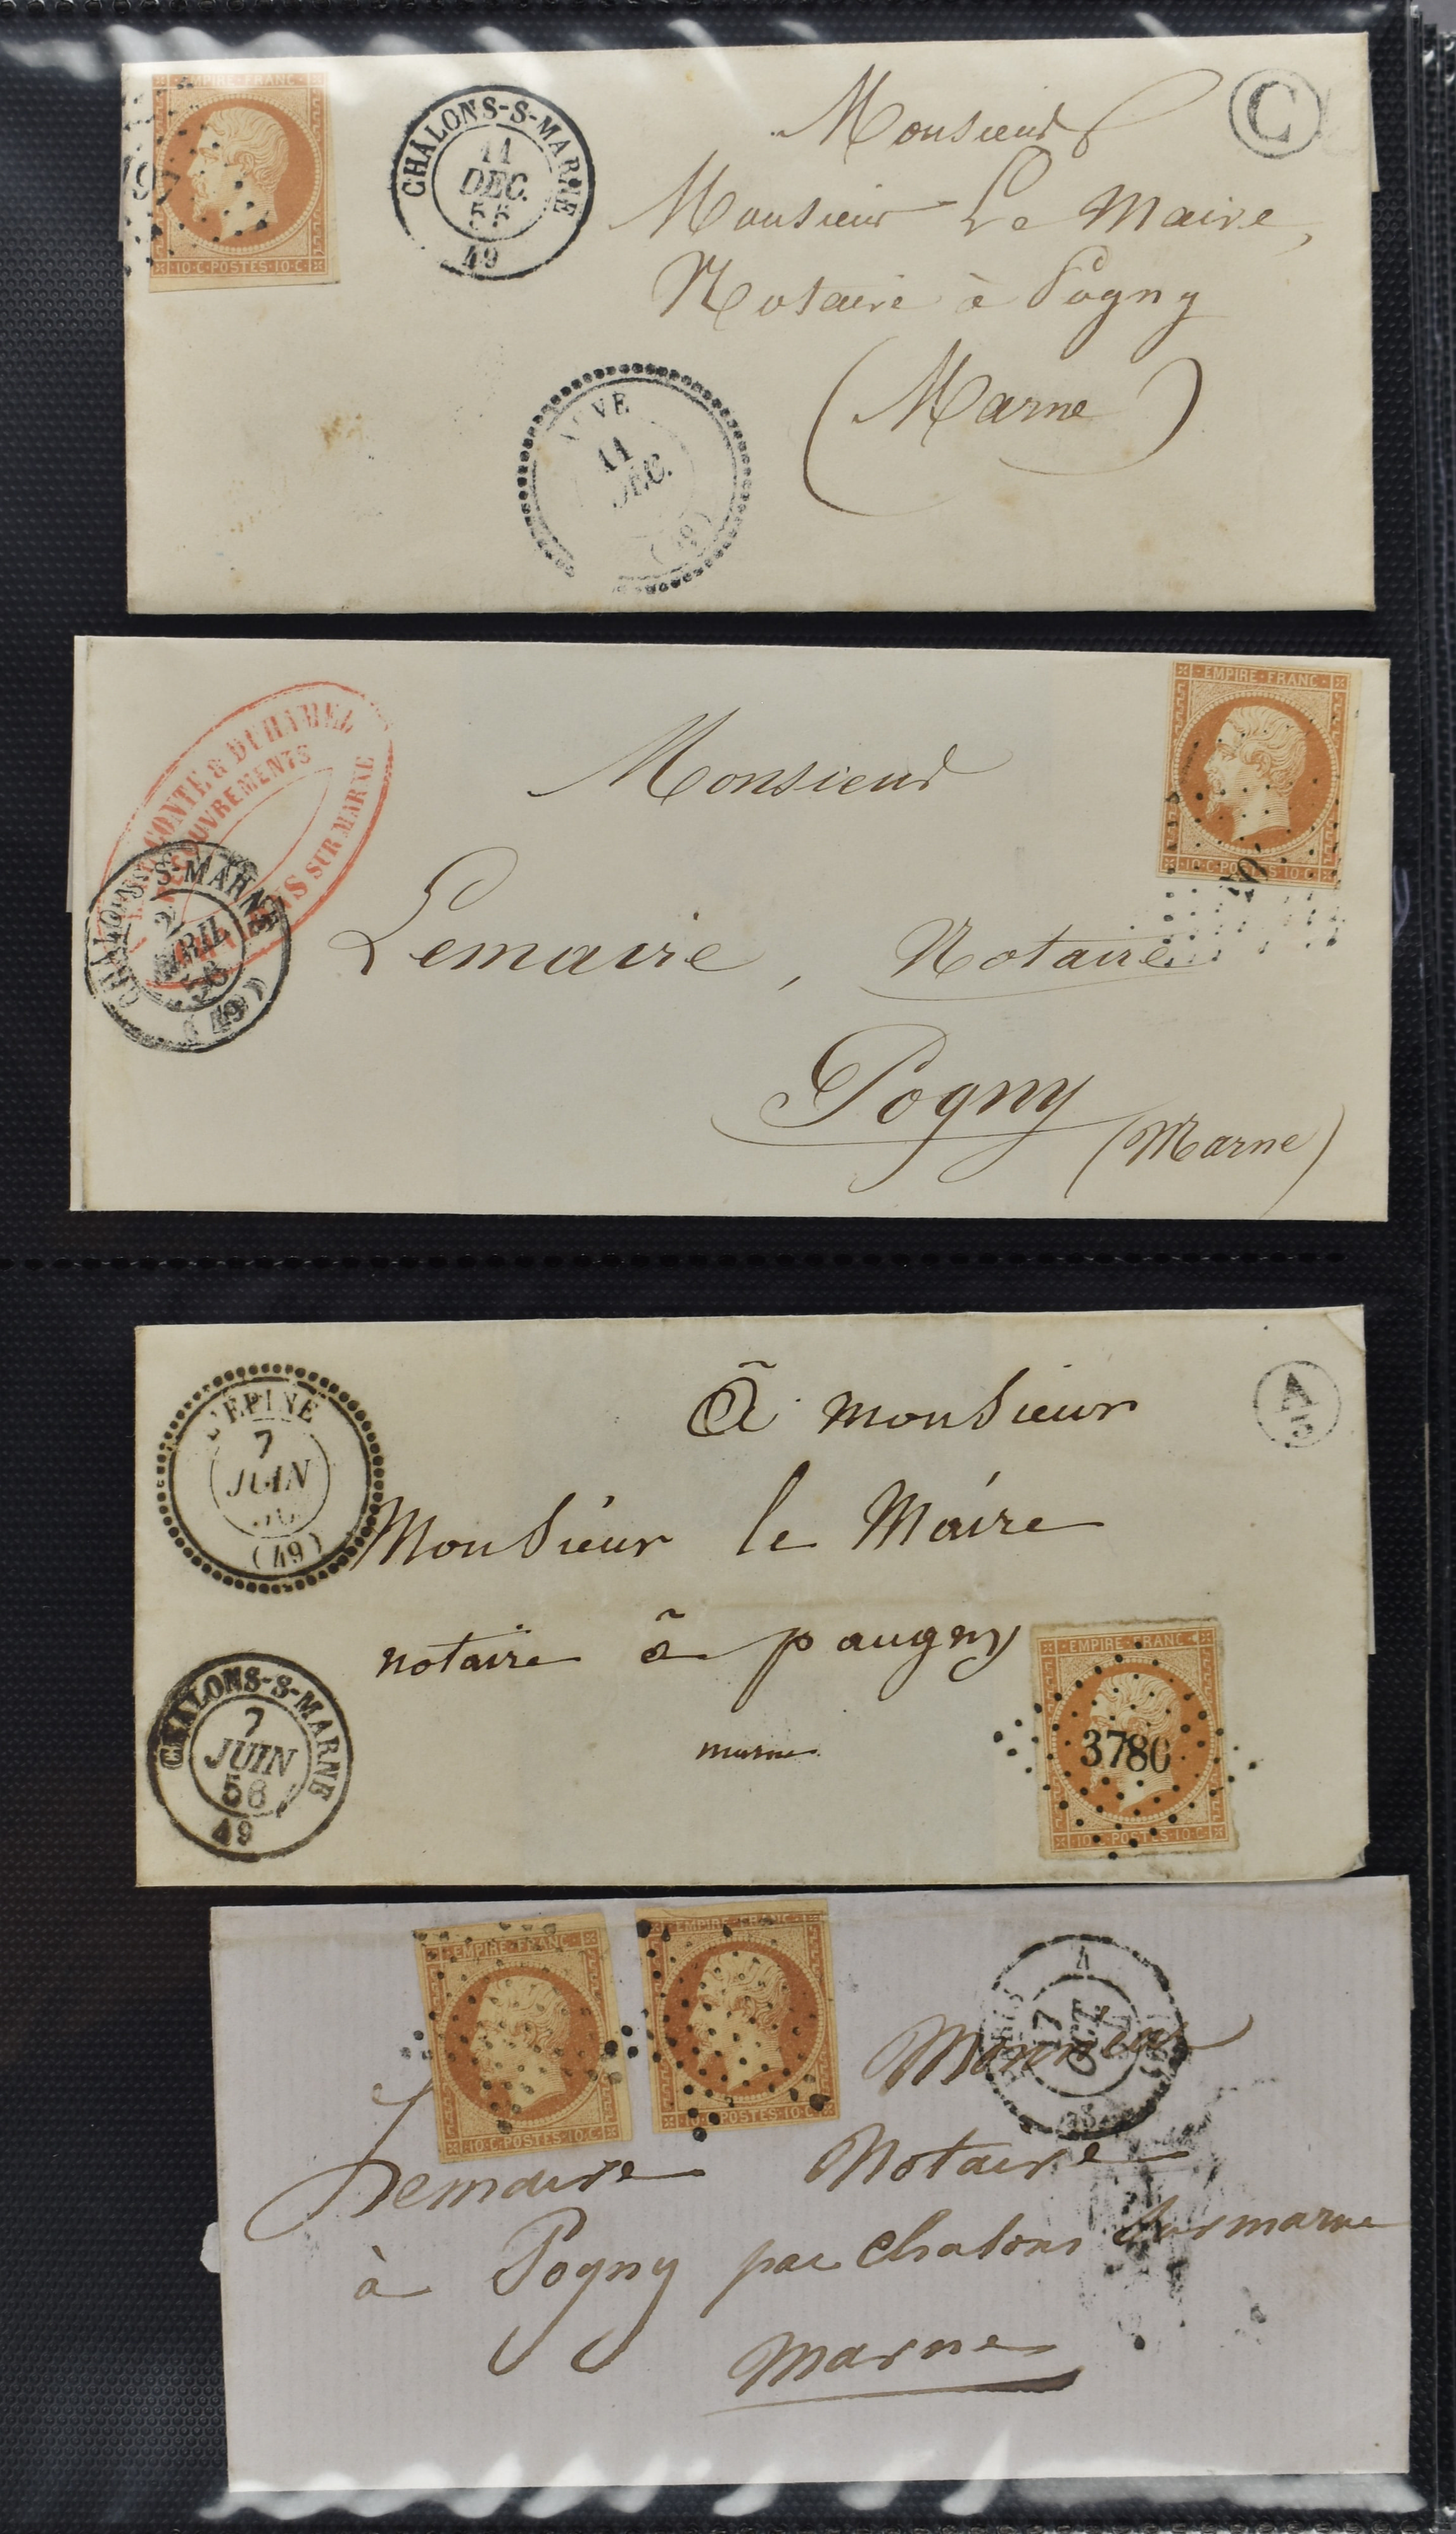 EMPIRE·FRANC·
·10·C·POSTES·10·C·
CHALONS-S-MARNE
11
DEC.
49
C
Monsieur
Monsieur Le Maire,
Notaire à Pogny
(Marne)
11
DEC.
CONTE & DUHAMEL
SUR MARNE
CHALONS-S-MARNE
2
AVRIL
58
(49)
EMPIRE·FRANC·
·10·C·POSTES·10·C·
Monsieur
Lemaire, Notaire
Pogny
(Marne)
L'ÉPINE
7
JUIN
(49)
A
à monsieur
Monsieur le Maire
notaire à paugny
marne
CHALONS-S-MARNE
7
JUIN
58
49
EMPIRE·FRANC
3780
·10·C·POSTES·10·C·
EMPIRE·FRANC·
·10·C·POSTES·10·C·
EMPIRE·FRANC·
·10·C·POSTES·10·C·
4
17
OCT
Monsieur
Lemaire Notaire
à Pogny par Chalons sur marne
Marne